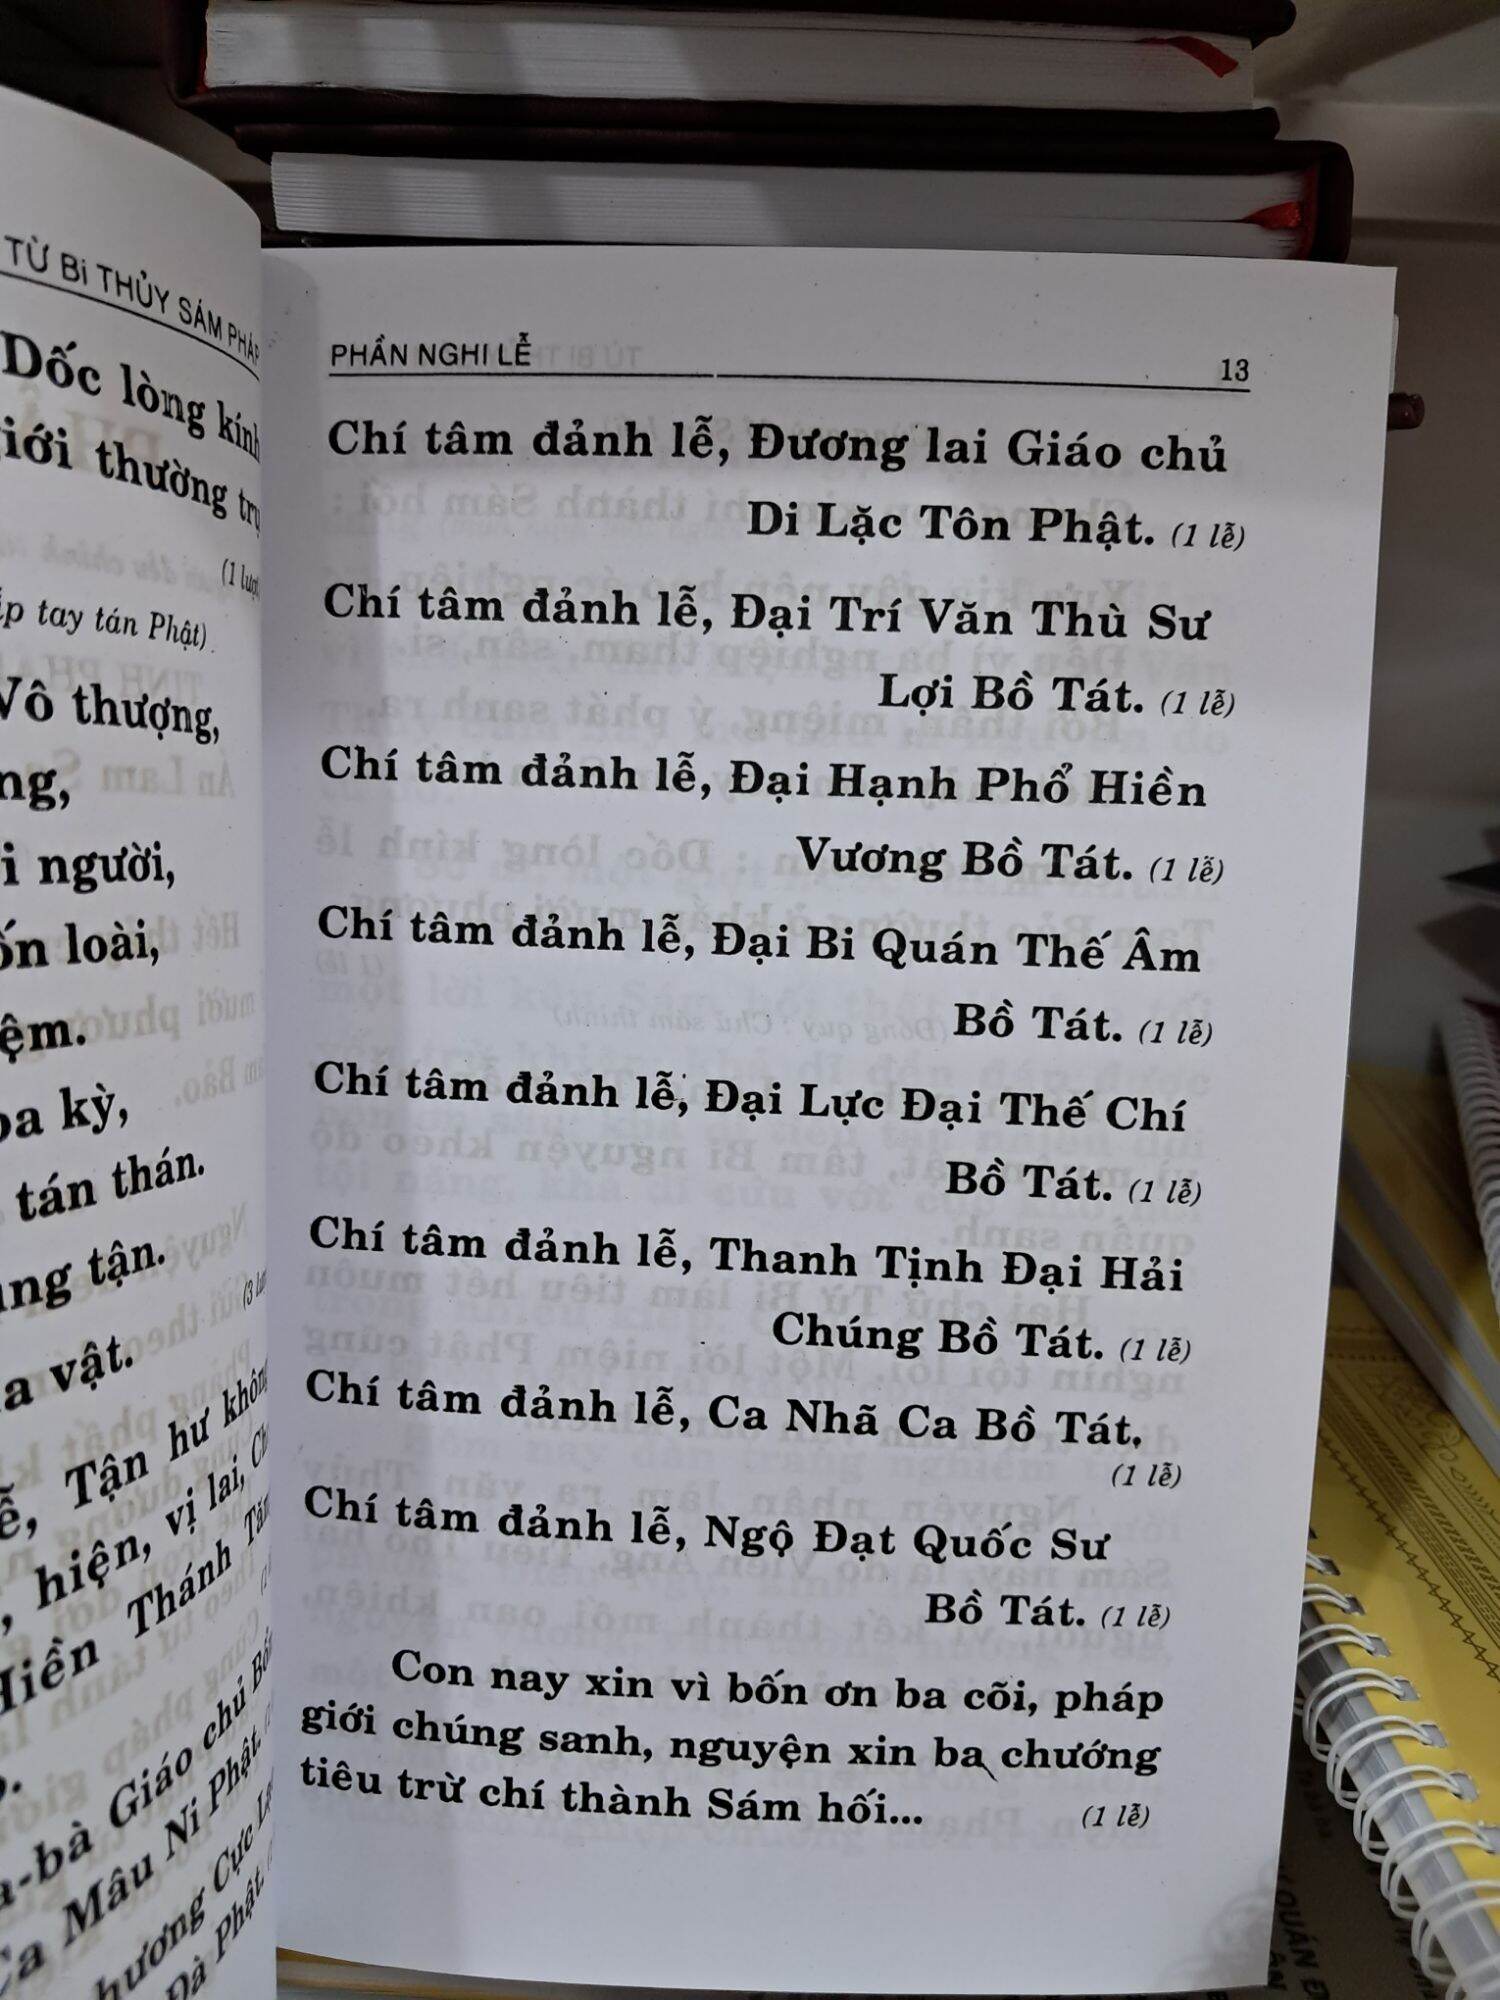 TỪ Bi THỦY SÁM PHÁP
Dốc lòng kính
giới thường trụ
(1 lượt
tay tán Phật).
Vô thượng,
người,
loài,
kỳ,
tán thán.
tận.
(3
vật.
Tận hư không
hiện, vị lai,
Hiền Thánh Tăng
Giáo chủ Bổn
Ca Mâu Ni Phật.
Cực
Đà Phật.
PHẦN NGHI LỄ 13
Chí tâm đảnh lễ, Đương lai Giáo chủ
Di Lặc Tôn Phật. (1 lễ)
Chí tâm đảnh lễ, Đại Trí Văn Thù Sư
Lợi Bồ Tát. (1 lễ)
Chí tâm đảnh lễ, Đại Hạnh Phổ Hiền
Vương Bồ Tát. (1 lễ)
Chí tâm đảnh lễ, Đại Bi Quán Thế Âm
Bồ Tát. (1 lễ)
Chí tâm đảnh lễ, Đại Lực Đại Thế Chí
Bồ Tát. (1 lễ)
Chí tâm đảnh lễ, Thanh Tịnh Đại Hải
Chúng Bồ Tát. (1 lễ)
Chí tâm đảnh lễ, Ca Nhã Ca Bồ Tát.
(1 lễ)
Chí tâm đảnh lễ, Ngộ Đạt Quốc Sư
Bồ Tát. (1 lễ)
Con nay xin vì bốn ơn ba cõi, pháp
giới chúng sanh, nguyện xin ba chướng
tiêu trừ chí thành Sám hối... (1 lễ)